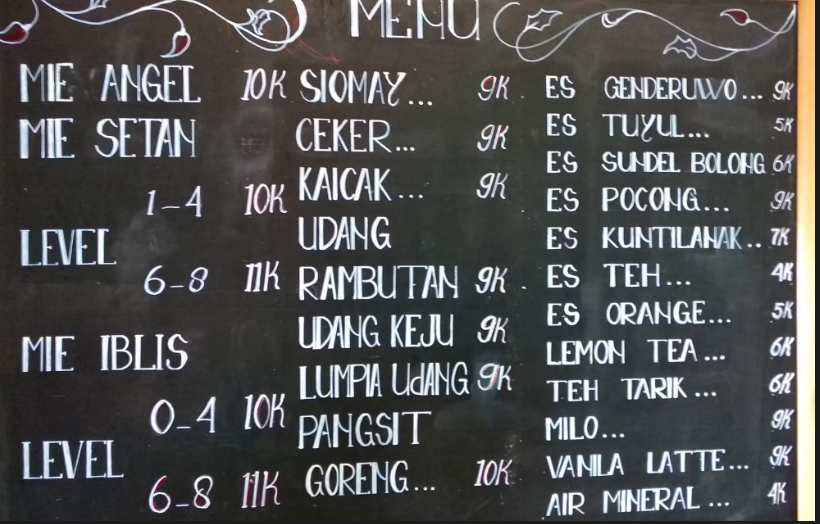 MENU
MIE ANGEL 10K
MIE SETAN
1-4 10K
LEVEL
6-8 11K
MIE IBLIS
0-4 10K
LEVEL
6-8 11K
SIOMAY... 9K.
CEKER... 9K
KAICAK... 9K
UDANG
RAMBUTAN 9K.
UDANG KEJU 9K
LUMPIA UdANG 9K
PANGSIT
GORENG... 10K
ES GENDERUWO... 9K
ES TUYUL... 5K
ES SUNDEL BOLONG 6K
ES POCONG... 9K
ES KUNTILANAK.. 7K
ES TEH... 4K
ES ORANGE... 5K
LEMON TEA... 6K
TEH TARIK... 6K
MILO... 9K
VANILA LATTE... 9K
AIR MINERAL... 4K